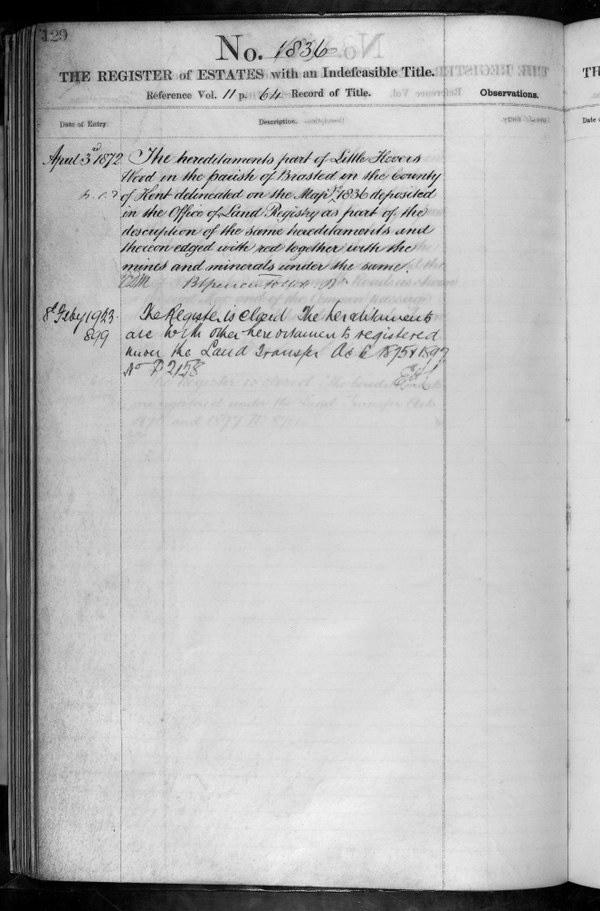 129
No. 1836
THE REGISTER of ESTATES with an Indefeasible Title.
Reference Vol. 11 p. 64 Record of Title.
Observations.
Date of Entry
Description.
April 3rd 1872 The hereditaments part of Little Hevers
Wood in the parish of Brasted in the County
of Kent delineated on the Map No 1836 deposited
in the Office of Land Registry as part of the
description of the same hereditaments and
thereon edged with red together with the
mines and minerals under the same.
Brent Spencer Follett
8th Feby The Register is closed The hereditaments
899 are with other hereditaments registered
under the Land Transfer Acts 1875 & 1897
No P 2158
TH
Date of